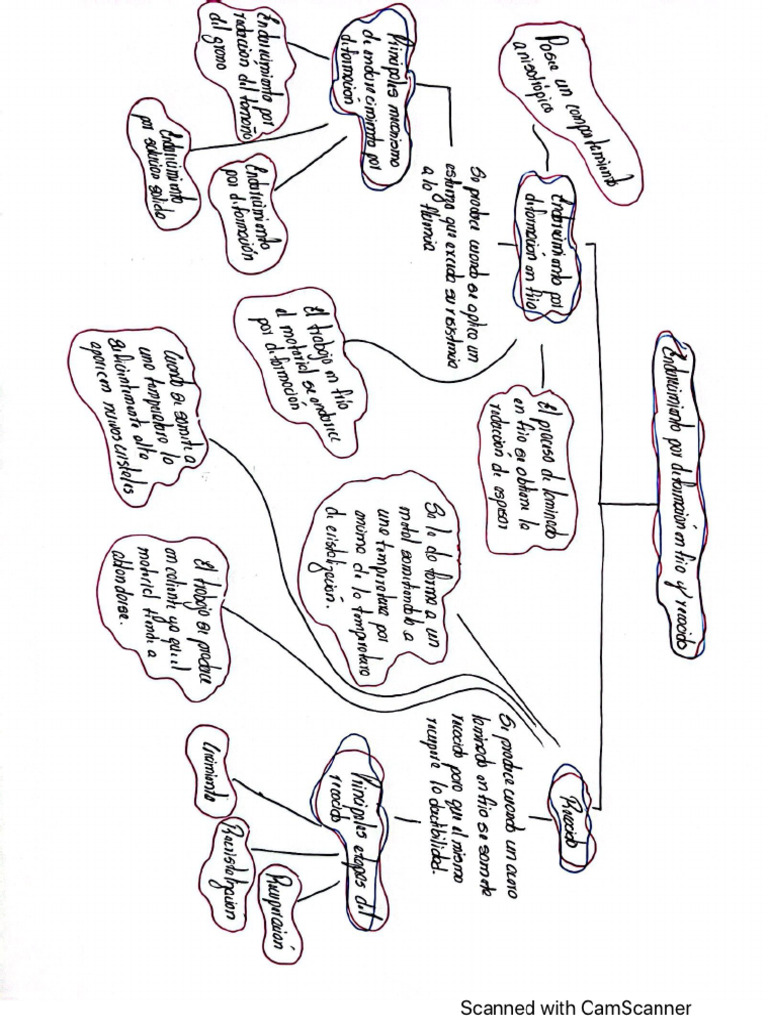 Endurecimiento por deformación en frio y recocido
Endurecimiento por
deformación en frio
Posee un comportamiento
anisotrópico
Se produce cuando se aplica un
esfuerzo que exceda su resistencia
a la fluencia
El proceso de laminado
en frio se obtiene la
reducción de espesor
El trabajo en frio
el material se endurece
por deformación
Principales mecanismo
de endurecimiento por
deformacion
Endurecimiento por
reducción del tamaño
del grano
Endurecimiento
por deformación
Endurecimiento
por solucion solida
Recocido
Se produce cuando un acero
laminado en frio se somete
recocido para que el mismo
recupere la ductibilidad.
Se le da forma a un
metal sometiendolo a
una temperatura por
encima de la temperatura
de cristalización.
Cuando se somete a
una temperatura lo
suficientemente alta
aparecen nuevos cristales
El trabajo se produce
en caliente ya que el
material tiende a
ablandarse.
Principales etapas del
recocido
Recuperación
Recristalización
Crecimiento
Scanned with CamScanner